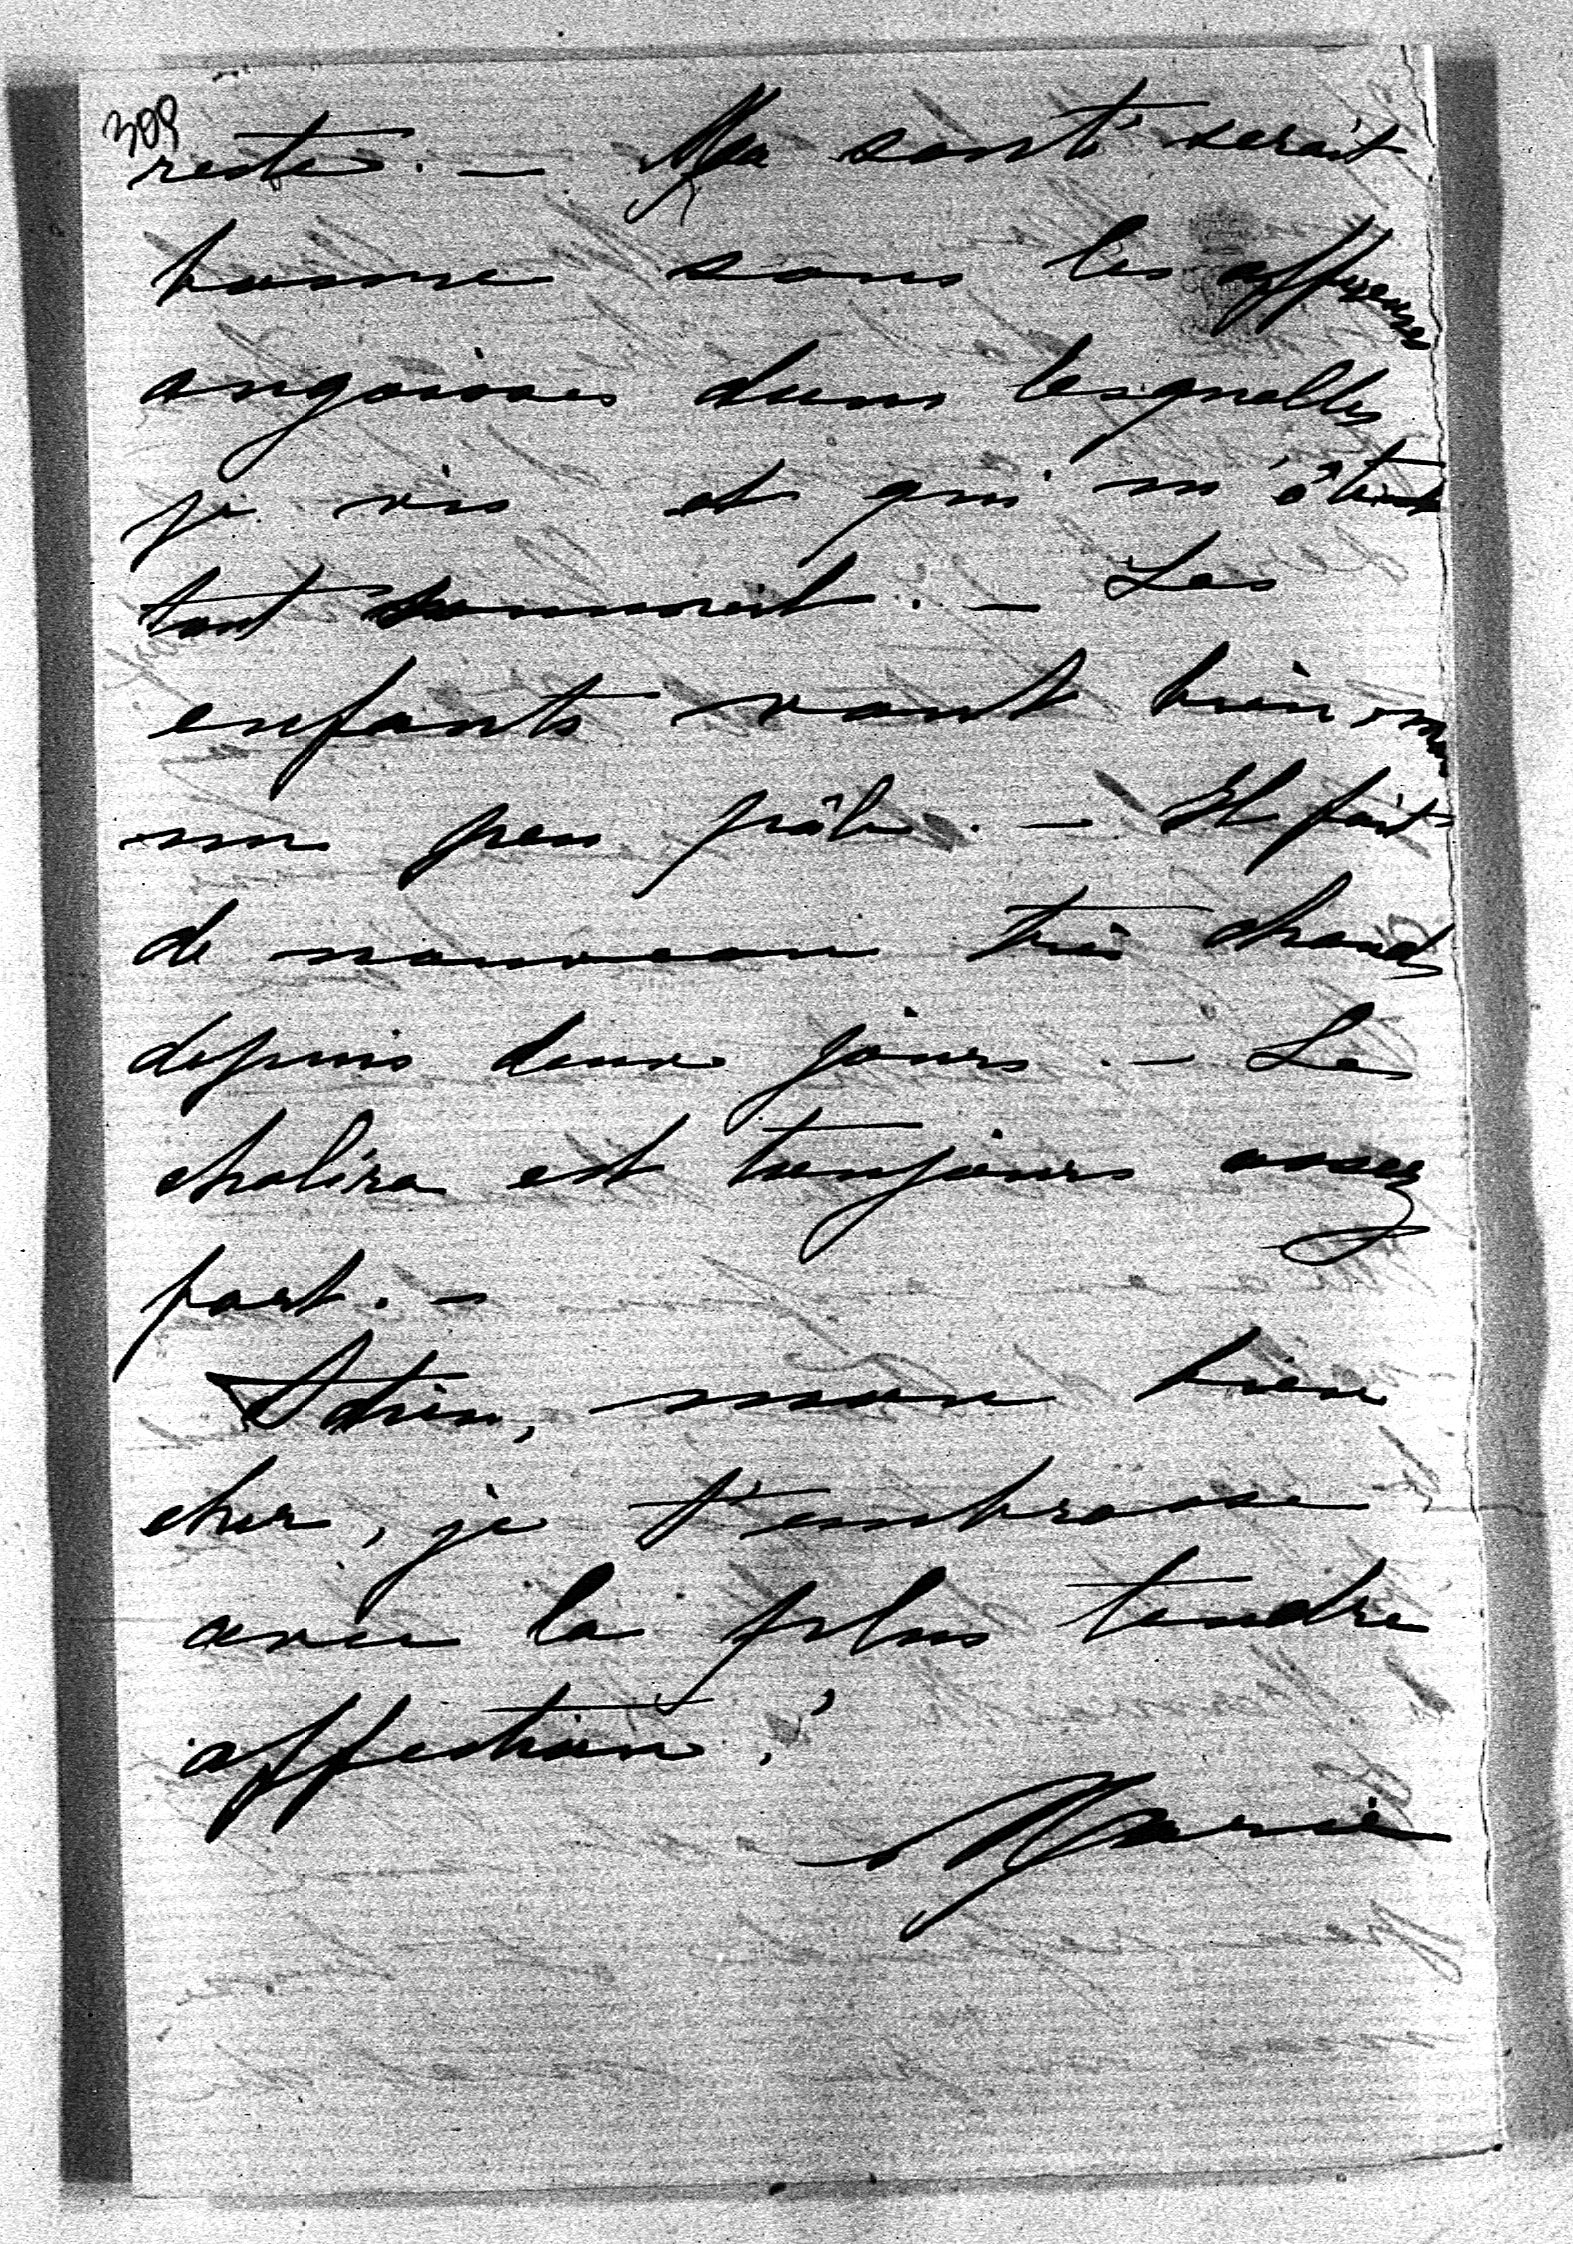 309
reste. — Ma santé serait
bonne sans les affreuses
angoisses dans lesquelles
je vis et qui m'ôtent
tout sommeil. — Les
enfants vont bien, mais
un peu pâle. — Il fait
de nouveau très chaud
depuis deux jours. — Le
choléra est toujours assez
fort. —
Adieu, mon bien
cher, je t'embrasse
avec la plus tendre
affection!
Marie